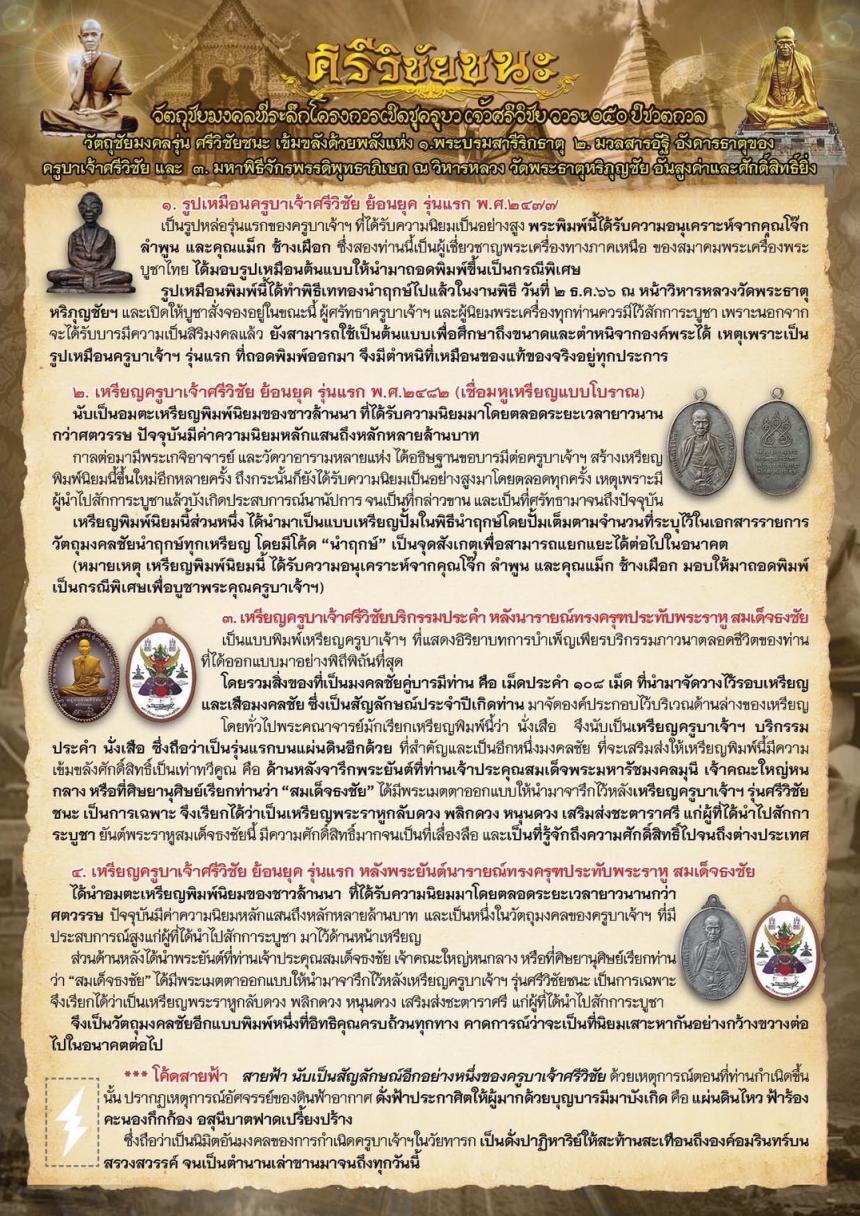 ศรีวิชัยชนะ
วัตถุชัยมงคลที่ระลึกโครงการเชิดชูครูบาเจ้าศรีวิชัย วาระ ๑๕๐ ปีชาตกาล
วัตถุชัยมงคลรุ่น ศรีวิชัยชนะ เข้มขลังด้วยพลังแห่ง ๑.พระบรมสารีริกธาตุ ๒. มวลสารอัฐิ อังคารธาตุของ
ครูบาเจ้าศรีวิชัย และ ๓. มหาพิธีจักรพรรดิพุทธาภิเษก ณ วิหารหลวง วัดพระธาตุหริภุญชัย อันสูงค่าและศักดิ์สิทธิ์ยิ่ง
๑. รูปเหมือนครูบาเจ้าศรีวิชัย ย้อนยุค รุ่นแรก พ.ศ.๒๔๗๗
เป็นรูปหล่อรุ่นแรกของครูบาเจ้าฯ ที่ได้รับความนิยมเป็นอย่างสูง พระพิมพ์นี้ได้รับความอนุเคราะห์จากคุณโจ๊ก
ลำพูน และคุณแม็ก ช้างเผือก ซึ่งสองท่านนี้เป็นผู้เชี่ยวชาญพระเครื่องทางภาคเหนือ ของสมาคมพระเครื่องพระ
บูชาไทย ได้มอบรูปเหมือนต้นแบบให้นำมาถอดพิมพ์ขึ้นเป็นกรณีพิเศษ
รูปเหมือนพิมพ์นี้ได้ทำพิธีเททองนำฤกษ์ไปแล้วในงานพิธี วันที่ ๒ ธ.ค.๖๖ ณ หน้าวิหารหลวงวัดพระธาตุ
หริภุญชัยฯ และเปิดให้บูชาสั่งจองอยู่ในขณะนี้ ผู้ศรัทธาครูบาเจ้าฯ และผู้นิยมพระเครื่องทุกท่านควรมีไว้สักการะบูชา เพราะนอกจาก
จะได้รับบารมีความเป็นสิริมงคลแล้ว ยังสามารถใช้เป็นต้นแบบเพื่อศึกษาถึงขนาดและตำหนิจากองค์พระได้ เหตุเพราะเป็น
รูปเหมือนครูบาเจ้าฯ รุ่นแรก ที่ถอดพิมพ์ออกมา จึงมีตำหนิที่เหมือนของแท้ของจริงอยู่ทุกประการ
๒. เหรียญครูบาเจ้าศรีวิชัย ย้อนยุค รุ่นแรก พ.ศ.๒๔๘๒ (เชื่อมหูเหรียญแบบโบราณ)
นับเป็นอมตะเหรียญพิมพ์นิยมของชาวล้านนา ที่ได้รับความนิยมมาโดยตลอดระยะเวลายาวนาน
กว่าศตวรรษ ปัจจุบันมีค่าความนิยมหลักแสนถึงหลักหลายล้านบาท
กาลต่อมามีพระเกจิอาจารย์ และวัดวาอารามหลายแห่ง ได้อธิษฐานขอบารมีต่อครูบาเจ้าฯ สร้างเหรียญ
พิมพ์นิยมนี้ขึ้นใหม่อีกหลายครั้ง ถึงกระนั้นก็ยังได้รับความนิยมเป็นอย่างสูงมาโดยตลอดทุกครั้ง เหตุเพราะมี
ผู้นำไปสักการะบูชาแล้วบังเกิดประสบการณ์นานัปการ จนเป็นที่กล่าวขาน และเป็นที่ศรัทธามาจนถึงปัจจุบัน
เหรียญพิมพ์นิยมนี้ส่วนหนึ่ง ได้นำมาเป็นแบบเหรียญปั้มในพิธีนำฤกษ์โดยปั้มเต็มตามจำนวนที่ระบุไว้ในเอกสารรายการ
วัตถุมงคลชัยนำฤกษ์ทุกเหรียญ โดยมีโค้ด “นำฤกษ์” เป็นจุดสังเกตุเพื่อสามารถแยกแยะได้ต่อไปในอนาคต
(หมายเหตุ เหรียญพิมพ์นิยมนี้ ได้รับความอนุเคราะห์จากคุณโจ๊ก ลำพูน และคุณแม็ก ช้างเผือก มอบให้มาถอดพิมพ์
เป็นกรณีพิเศษเพื่อบูชาพระคุณครูบาเจ้าฯ)
๓. เหรียญครูบาเจ้าศรีวิชัยบริกรรมประคำ หลังนารายณ์ทรงครุฑประทับพระราหู สมเด็จธงชัย
เป็นแบบพิมพ์เหรียญครูบาเจ้าฯ ที่แสดงอิริยาบทการบำเพ็ญเพียรบริกรรมภาวนาตลอดชีวิตของท่าน
ที่ได้ออกแบบมาอย่างพิถีพิถันที่สุด
โดยรวมสิ่งของที่เป็นมงคลชัยคู่บารมีท่าน คือ เม็ดประคำ ๑๐๘ เม็ด ที่นำมาจัดวางไว้รอบเหรียญ
และเสือมงคลชัย ซึ่งเป็นสัญลักษณ์ประจำปีเกิดท่าน มาจัดองค์ประกอบไว้บริเวณด้านล่างของเหรียญ
โดยทั่วไปพระคณาจารย์มักเรียกเหรียญพิมพ์นี้ว่า นั่งเสือ จึงนับเป็นเหรียญครูบาเจ้าฯ บริกรรม
ประคำ นั่งเสือ ซึ่งถือว่าเป็นรุ่นแรกบนแผ่นดินอีกด้วย ที่สำคัญและเป็นอีกหนึ่งมงคลชัย ที่จะเสริมส่งให้เหรียญพิมพ์นี้มีความ
เข้มขลังศักดิ์สิทธิ์เป็นเท่าทวีคูณ คือ ด้านหลังจารึกพระยันต์ที่ท่านเจ้าประคุณสมเด็จพระมหารัชมงคลมุนี เจ้าคณะใหญ่หน
กลาง หรือที่ศิษยานุศิษย์เรียกท่านว่า “สมเด็จธงชัย” ได้มีพระเมตตาออกแบบให้นำมาจารึกไว้หลังเหรียญครูบาเจ้าฯ รุ่นศรีวิชัย
ชนะ เป็นการเฉพาะ จึงเรียกได้ว่าเป็นเหรียญพระราหูกลับดวง พลิกดวง หนุนดวง เสริมส่งชะตาราศรี แก่ผู้ที่ได้นำไปสักกา
ระบูชา ยันต์พระราหูสมเด็จธงชัยนี้ มีความศักดิ์สิทธิ์มากจนเป็นที่เลื่องลือ และเป็นที่รู้จักถึงความศักดิ์สิทธิ์ไปจนถึงต่างประเทศ
๔. เหรียญครูบาเจ้าศรีวิชัย ย้อนยุค รุ่นแรก หลังพระยันต์นารายณ์ทรงครุฑประทับพระราหู สมเด็จธงชัย
ได้นำอมตะเหรียญพิมพ์นิยมของชาวล้านนา ที่ได้รับความนิยมมาโดยตลอดระยะเวลายาวนานกว่า
ศตวรรษ ปัจจุบันมีค่าความนิยมหลักแสนถึงหลักหลายล้านบาท และเป็นหนึ่งในวัตถุมงคลของครูบาเจ้าฯ ที่มี
ประสบการณ์สูงแก่ผู้ที่ได้นำไปสักการะบูชา มาไว้ด้านหน้าเหรียญ
ส่วนด้านหลังได้นำพระยันต์ที่ท่านเจ้าประคุณสมเด็จธงชัย เจ้าคณะใหญ่หนกลาง หรือที่ศิษยานุศิษย์เรียกท่าน
ว่า “สมเด็จธงชัย” ได้มีพระเมตตาออกแบบให้นำมาจารึกไว้หลังเหรียญครูบาเจ้าฯ รุ่นศรีวิชัยชนะ เป็นการเฉพาะ
จึงเรียกได้ว่าเป็นเหรียญพระราหูกลับดวง พลิกดวง หนุนดวง เสริมส่งชะตาราศรี แก่ผู้ที่ได้นำไปสักการะบูชา
จึงเป็นวัตถุมงคลชัยอีกแบบพิมพ์หนึ่งที่อิทธิคุณครบถ้วนทุกทาง คาดการณ์ว่าจะเป็นที่นิยมเสาะหากันอย่างกว้างขวางต่อ
ไปในอนาคตต่อไป
*** โค้ดสายฟ้า สายฟ้า นับเป็นสัญลักษณ์อีกอย่างหนึ่งของครูบาเจ้าศรีวิชัย ด้วยเหตุการณ์ตอนที่ท่านกำเนิดขึ้น
นั้น ปรากฏเหตุการณ์อัศจรรย์ของดินฟ้าอากาศ ดั่งฟ้าประกาศิตให้ผู้มากด้วยบุญบารมีมาบังเกิด คือ แผ่นดินไหว ฟ้าร้อง
คะนองกึกก้อง อสุนีบาตฟาดเปรี้ยงปร้าง
ซึ่งถือว่าเป็นนิมิตอันมงคลของการกำเนิดครูบาเจ้าฯในวัยทารก เป็นดั่งปาฏิหาริย์ให้สะท้านสะเทือนถึงองค์อมรินทร์บน
สรวงสวรรค์ จนเป็นตำนานเล่าขานมาจนถึงทุกวันนี้